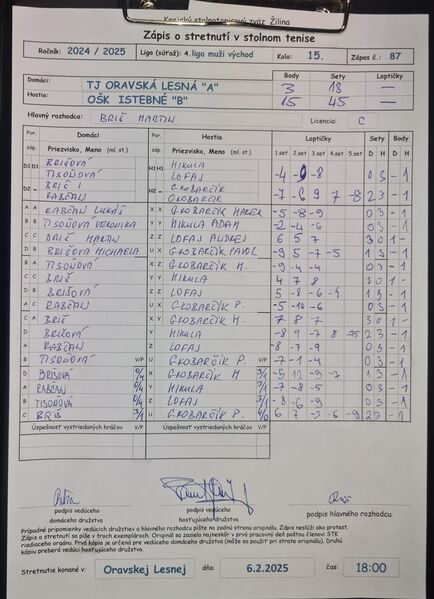 Krajský stolnotenisový zväz Žilina
Zápis o stretnutí v stolnom tenise
Ročník: 2024 / 2025 Liga (súťaž): 4.liga muži východ Kolo: 15. Zápas č.: 87
Domáci: TJ ORAVSKÁ LESNÁ "A" Body 3 Sety 18 Loptičky
Hostia: OŠK ISTEBNÉ "B" 15 45
Hlavný rozhodca: BRIŠ MARTIN Licencia: C
Por. Domáci Por. Hostia Loptičky Sety Body
záp. Priezvisko, Meno (ml. st.) záp. Priezvisko, Meno (ml. st.) 1.set 2.set 3.set 4.set 5.set D H D H
D1 D1 BRIŠOVÁ H1 H1 MIKULA
TISOŇOVÁ LOFAJ -4 -9 -8 0 3 - 1
D2 BRIŠ H2 GROBARČÍK
RABČAN GROBARČÍK -7 -6 9 7 -8 2 3 - 1
A A RABČAN LUKÁŠ X X GROBARČÍK MAREK -5 -8 -9 0 3 - 1
B B TISOŇOVÁ VERONIKA Y Y MIKULA ADAM -2 -4 -6 0 3 - 1
C C BRIŠ MARTIN Z Z LOFAJ ANDREJ 6 5 7 3 0 1 -
D B BRIŠOVÁ MICHAELA U X GROBARČÍK PAVOL -9 5 -7 -5 1 3 - 1
B A TISOŇOVÁ X Z GROBARČÍK M. -9 -4 -4 0 3 - 1
C C BRIŠ Y Y MIKULA 4 7 8 3 0 1 -
D B BRIŠOVÁ Z Z LOFAJ 5 -8 -6 -4 1 3 - 1
A C RABČAN U X GROBARČÍK P. -5 -10 -6 0 3 - 1
C A BRIŠ X Y GROBARČÍK M. 7 8 7 3 0 1 -
D BRIŠOVÁ Y MIKULA -8 9 -7 8 2 3 - 1
A RABČAN Z LOFAJ -8 -7 -9 0 3 - 1
B TISOŇOVÁ V/P U GROBARČÍK P. V/P -7 -1 -4 0 3 - 1
D BRIŠOVÁ 0/4 X GROBARČÍK M 3/1 -5 12 -9 -7 1 3 - 1
A RABČAN 0/4 Y MIKULA 3/1 -7 -8 -5 0 3 - 1
B TISOŇOVÁ 0/4 Z LOFAJ 3/1 -8 -6 -9 0 3 - 1
C BRIŠ 3/1 U GROBARČÍK P. 4/0 6 7 -3 -6 -9 2 3 - 1
Úspešnosť vystriedaných hráčov V/P Úspešnosť vystriedaných hráčov V/P
podpis vedúceho domáceho družstva
podpis vedúceho hosťujúceho družstva
podpis hlavného rozhodcu
Prípadné pripomienky vedúcich družstiev a hlavného rozhodcu píšte na zadnú stranu originálu. Zápis neslúži ako protest.
Zápis o stretnutí sa píše v troch exemplároch. Originál sa zasiela najneskôr v prvý pracovný deň poštou členovi STK
riadiaceho orgánu. Prvá kópia je určená pre vedúceho domáceho družstva (môže sa použiť pri strate originálu). Druhú
kópiu preberá vedúci hosťujúceho družstva.
Stretnutie konané v: Oravskej Lesnej dňa: 6.2.2025 čas: 18:00